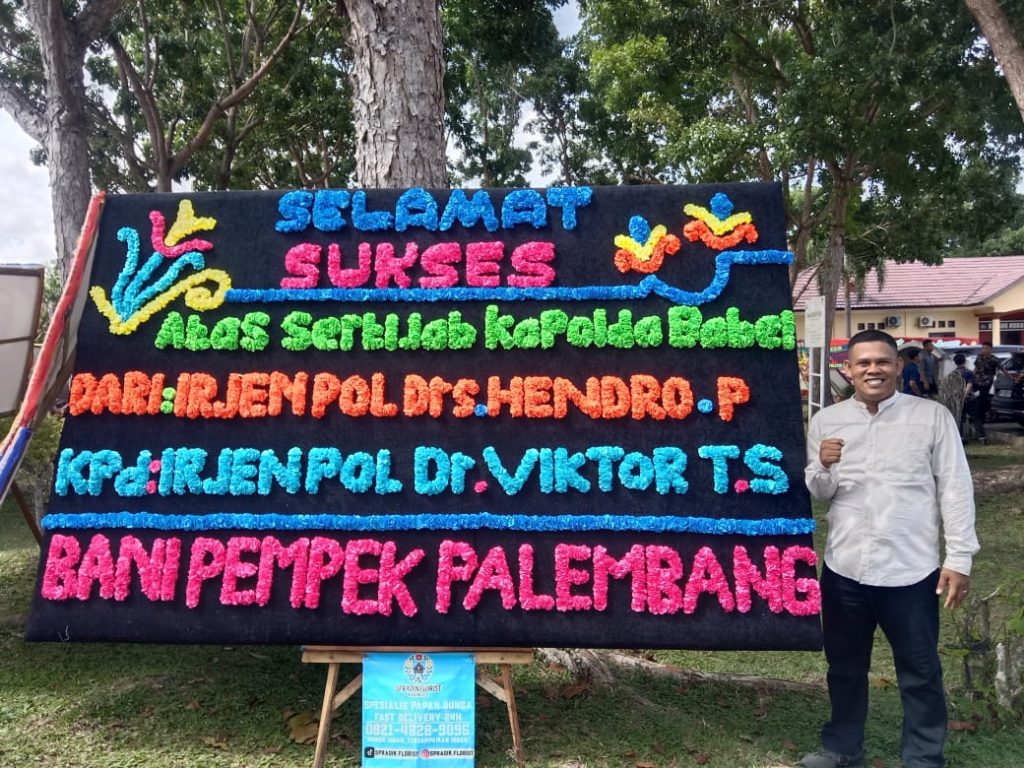 SELAMAT
SUKSES
Atas Sertijab Kapolda Babel
DARI:IRJEN POL Drs.HENDRO.P
KPd:IRJEN POL Dr.VIKTOR T.S
BANI PEMPEK PALEMBANG
SPRADIK.FLORIST
SPESIALIS PAPAN BUNGA
FAST DELIVERY 24H
0821-4828-9095
SPRADIK.FLORIST SPRADIK.FLORIST